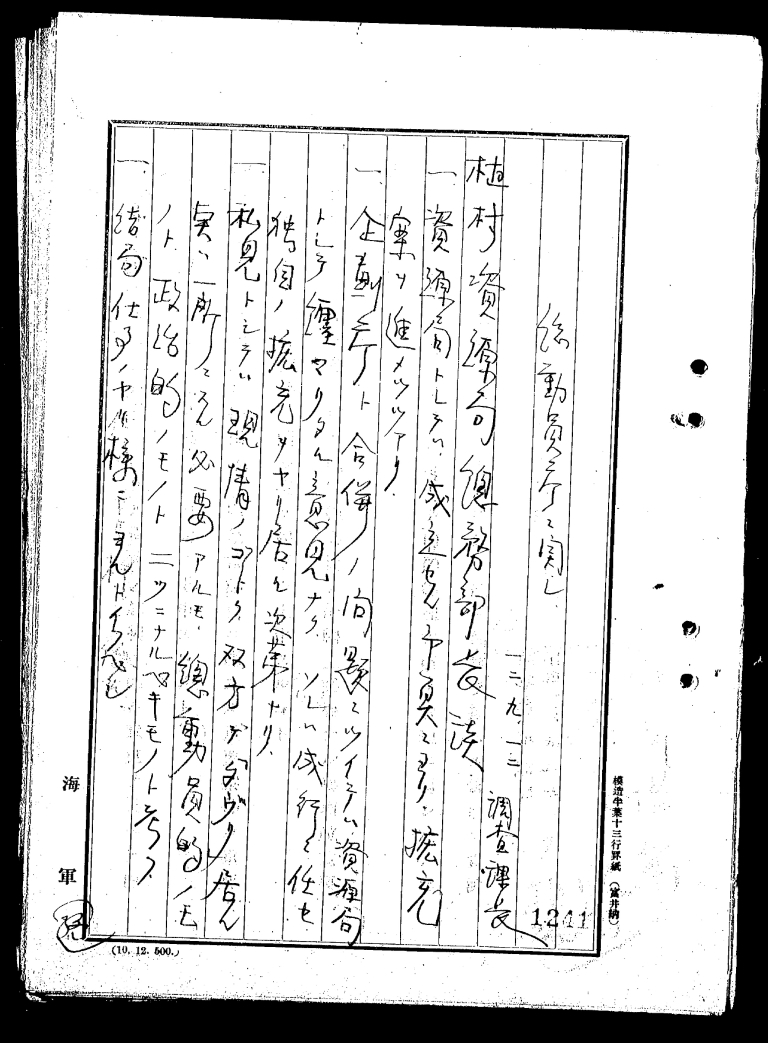 総動員庁ニ関シ
一二、九、一三　調査課長
植村資源局総務部長談
一、資源局トシテハ、成立セル予算ニヨリ、拡充
案ヲ進メツツアリ
一、企劃庁ト合併ノ問題ニツイテハ資源局
トシテ纏マリタル意見ナク、ソレハ成行ニ任セ
独自ノ拡充ヲヤリ居ル次第ナリ
一、私見トシテハ現情ノゴトク双方デダヴリ居ル
実ハ一所ニスル必要アルモ、總動員的ノモ
ノト政治的ノモノト二ツニナルベキモノト考フ
一、結局仕事ノヤリ様ニヨルト
1241
模造半葉十三行罫紙（富井納）
海軍
(10. 12. 500.)